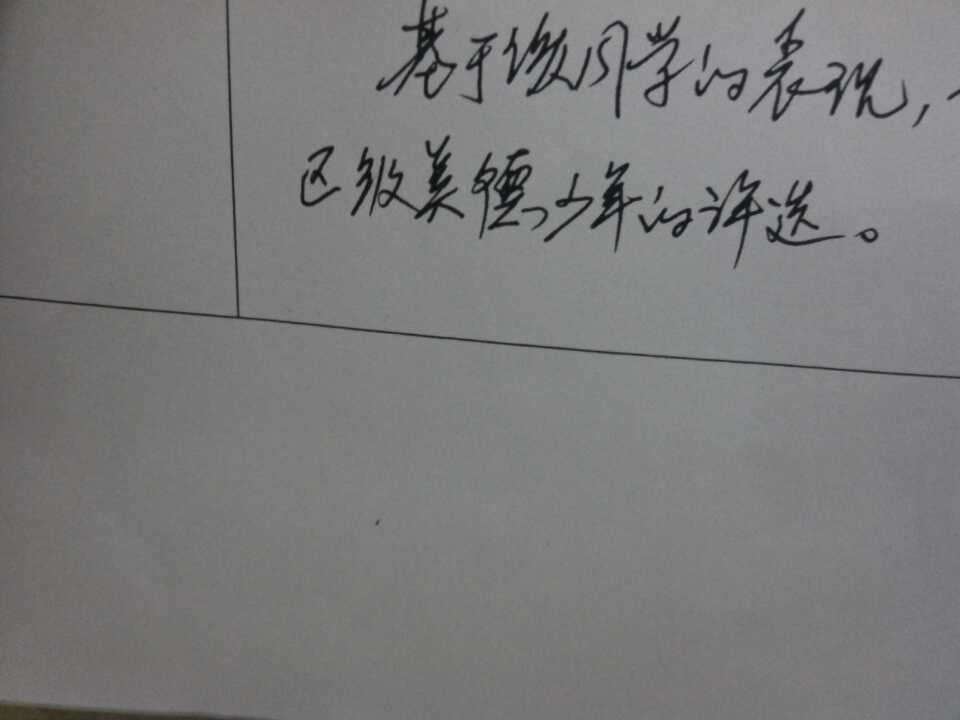 基于该同学的表现，
区级美德少年的评选。